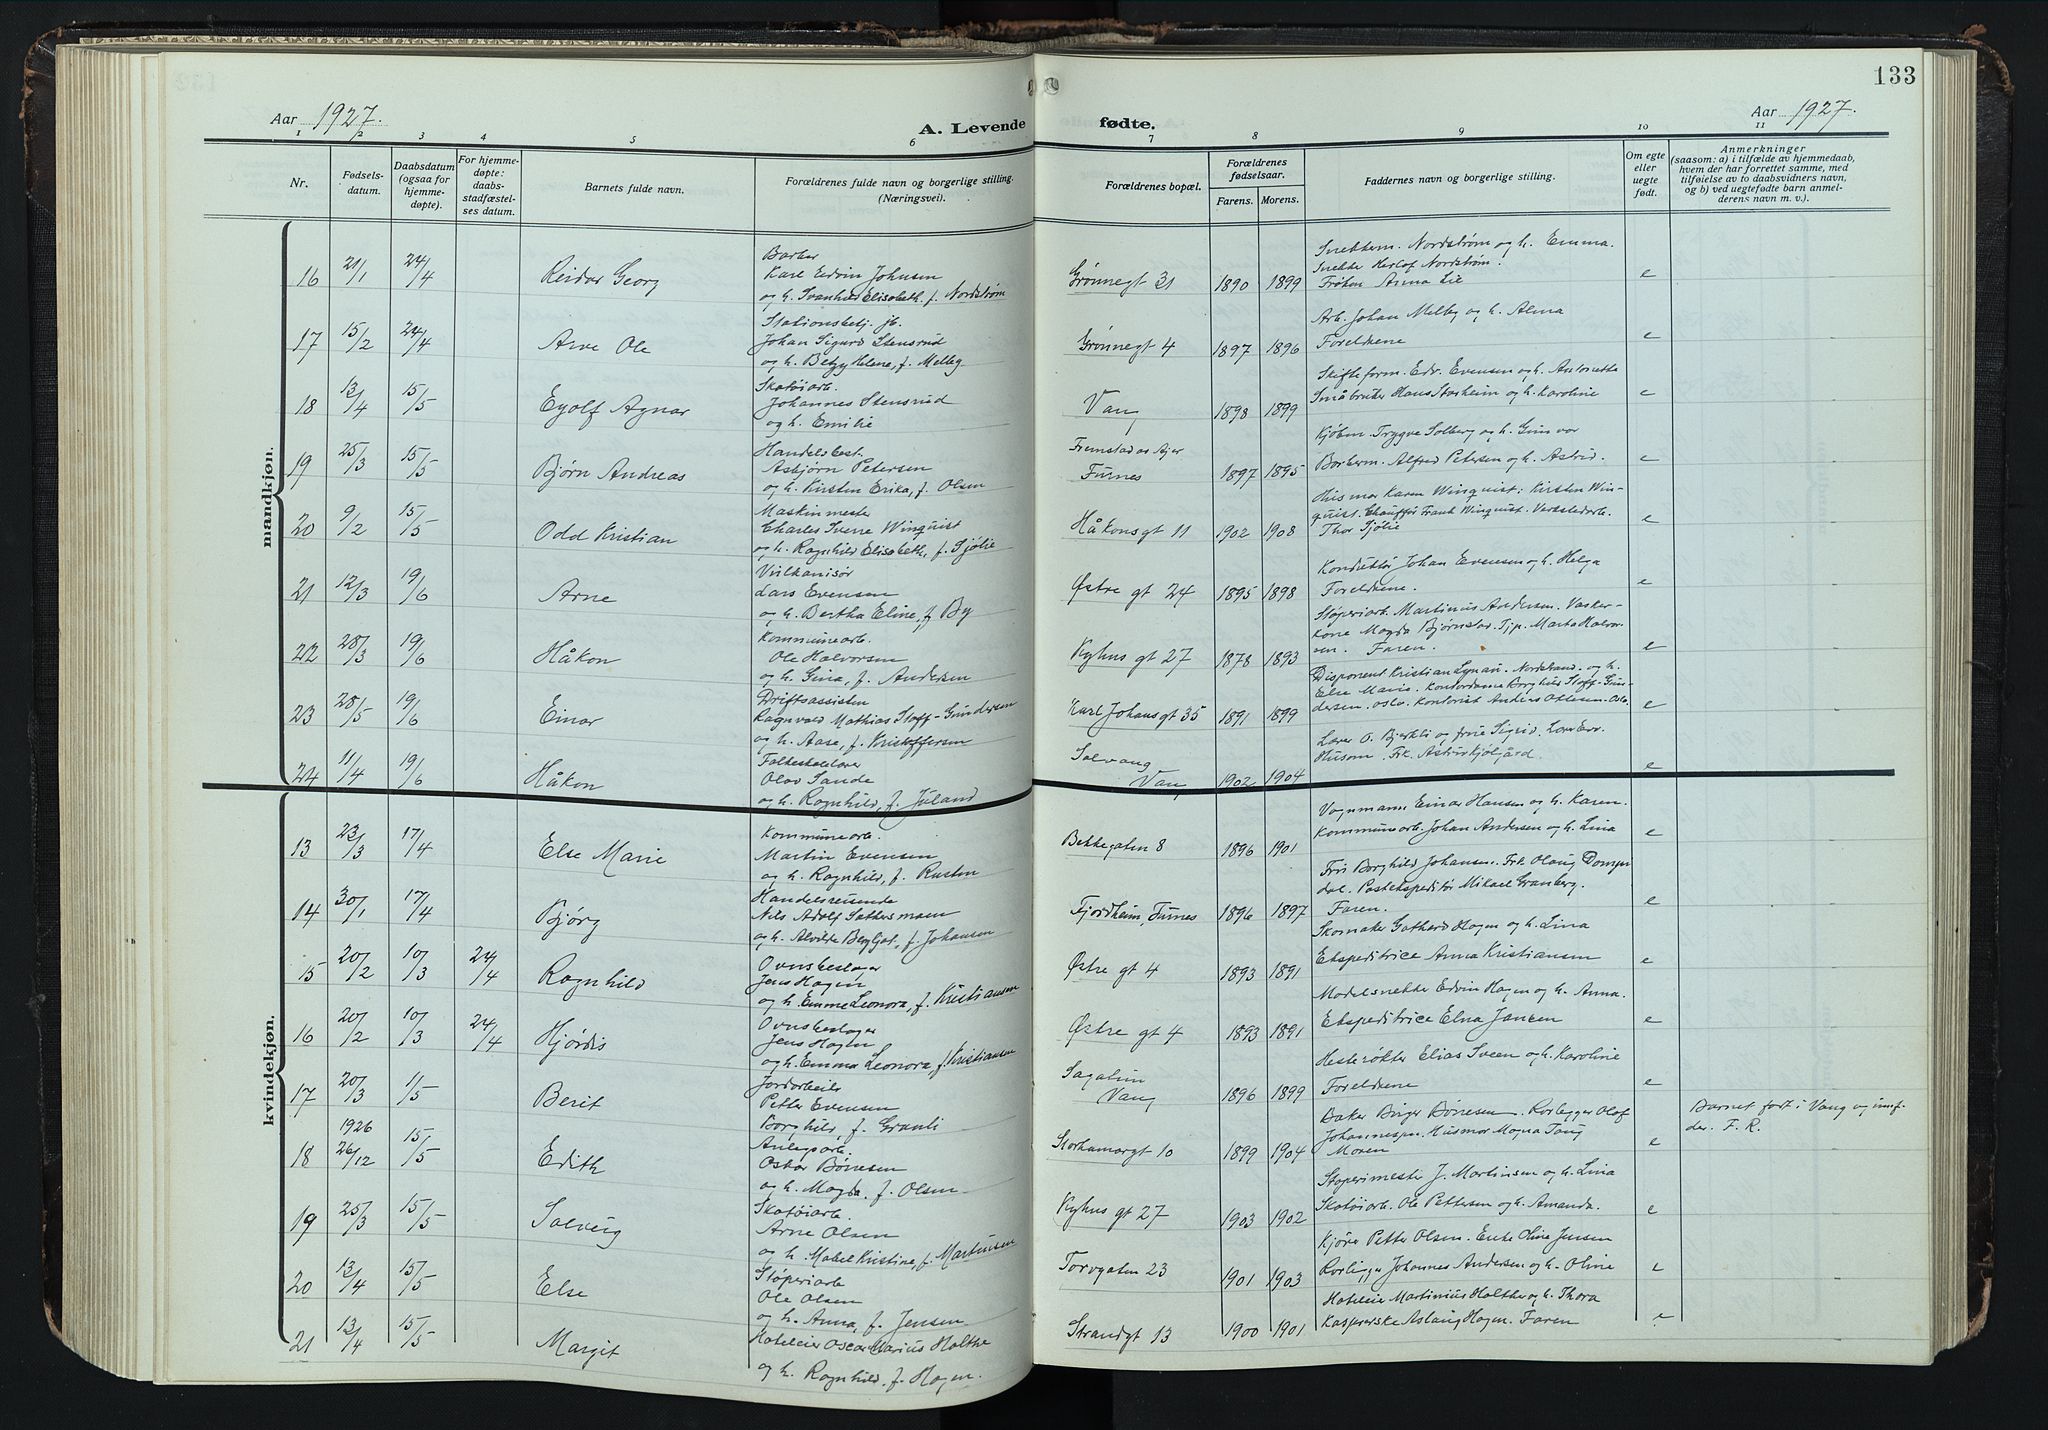 133
Aar 1927.
A. Levende fødte.
Aar 1927.
1 2 3 4 5 6 7 8 9 10 11
Nr.
Fødsels-
datum.
Daabsdatum
(ogsaa for
hjemme-
døpte).
For hjemme-
døpte:
daabs-
stadfæstel-
ses datum.
Barnets fulde navn.
Forældrenes fulde navn og borgerlige stilling.
(Næringsvei).
Forældrenes bopæl.
Forældrenes
fødselsaar.
Farens. Morens.
Faddernes navn og borgerlige stilling.
Om egte
eller
uegte
født.
Anmerkninger
(saasom: a) i tilfælde av hjemmedaab,
hvem der har forrettet samme, med
tilføielse av to daabsvidners navn,
og b) ved uegtefødte barn anmel-
derens navn m. v.).
mandkjøn.
16 21/1 24/4 Reidar Georg
Barber
Karl Edvin Johnsen
og h. Svanhild Elisabeth, f. Nordstrøm
Grønnegt 31 1890 1899
Snekkerm. Nordstrøm og h. Emma.
Snekke Herlof Nordstrøm.
Frøken Anna Lie
e
17 15/2 24/4 Arve Ole
Stationsbetj. jb.
Johan Sigurd Stensrud
og h. Betzy Helene, f. Melby
Grønnegt 4 1897 1896
Arb. Johan Melby og h. Alma
Foreldrene
e
18 13/4 15/5 Eyolf Agnar
Skotøiarb.
Johannes Stensrud
og h. Emilie
Vang 1898 1899
Skifteform. Edv. Evensen og h. Antonette
Småbruker Hans Aasheim og h. Karoline
e
19 25/3 15/5 Bjørn Andreas
Handelsbest.
Asbjørn Petersen
og h. Kirsten Erika, f. Olsen
Furnes 1897 1895
Kjøbm. Trygve Solberg og h. Gunvor
Barberm. Alfred Petersen og h. Astrid.
e
20 9/2 15/5 Odd Kristian
Maskinmester
Charles Sverre Winquist
og h. Ragnhild Elisabeth, f. Sjølie
Håkonsgt 11 1902 1908
Husmor Karen Winquist. Kirsten Win-
quist. Chauffør Frank Winquist. Verkstedarb.
Thor Sjølie
e
21 12/3 19/6 Arne
Vulkanisør
Lars Evensen
og h. Bertha Eline, f. By
Østre gt 24 1895 1898
Konduktør Johan Evensen og h. Helga
Foreldrene.
e
22 28/3 19/6 Håkon
Kommunearb.
Ole Halvorsen
og h. Gina, f. Andersen
Kyhus gt 27 1878 1893
Støperiarb. Martinius Andersen. Vasker-
kone Magda Bjørnstad. Tjp. Marta Halvor-
sen. Faren.
e
23 28/5 19/6 Einar
Driftsassisten
Ragnvald Mathias Stoff-Gundersen
og h. Aase, f. Kristoffersen
Karl Johans gt 35 1891 1899
Disponent Kristian Lynau. Nordstrand. og h.
Else Marie. Kontordame Borghild Stoff-Gun-
dersen. Oslo. Kontorist Anders Ottesen. Oslo.
e
24 11/4 19/6 Håkon
Folkeskolelærer
Olav Sande
og h. Ragnhild, f. Juland
Solvang
Vang 1902 1904
Lærer O. Bjerkli og frue Sigrid. Lærer Edv.
Husom. Frk. Astrid Kjølgård.
e
kvindekjøn.
13 23/3 17/4 Else Marie
Kommunearb.
Martin Evensen
og h. Ragnhild, f. Rusten
Bekkegaten 8 1896 1901
Vognmann Einar Hansen og h. Karen.
Kommunearb. Johan Andersen og h. Lina
e
14 30/1 17/4 Bjørg
Handelsreisende
Nils Adolf Sattersmoen
og h. Alvilde Bergljot, f. Johansen
Fjordheim, Furnes 1896 1897
Fru Borghild Johansen. Frk Olaug Domper-
dal. Postekspeditør Mikael Granberg.
Faren.
e
15 20/2 10/3 24/4 Ragnhild
Ovnsbeslager
Jens Hagen
og h. Emma Leonora, f. Kristiansen
Østre gt 4 1893 1891
Skomaker Gothard Hagen og h. Lina
Ekspeditrice Anna Kristiansen
e
16 20/2 10/3 24/4 Hjørdis
Ovnsbeslager
Jens Hagen
og h. Emma Leonora, f. Kristiansen
Østre gt 4 1893 1891
Modelsnekke Edvin Hagen og h. Anna.
Ekspeditrice Elna Jansen
e
17 20/3 1/5 Berit
Jordarbeide
Petter Evensen
Borghild, f. Granli
Sagatun
Vang 1896 1899
Hesterøkter Elias Sveen og h. Karoline
Foreldrene
e
18 1926 26/12 15/5 Edith
Anlegsarb.
Oskar Bønesen
og h. Magda, f. Olsen
Storhamargt 10 1899 1904
Baker Birger Bønesen. Rørlegger Olaf
Johannesen. Husmor Magna Tang
Moren
e
Barnet født i Vang og innf.
der. F. R.
19 25/3 15/5 Solveig
Skotøiarb.
Arne Olsen
og h. Mabel Kristine, f. Martinsen
Kyhus gt 27 1903 1902
Støperimester J. Martinsen og h. Lina
Skotøiarb. Ole Pettersen og h. Amanda.
e
20 13/4 15/5 Else
Støperiarb
Ole Olsen
og h. Anna, f. Jensen
Torvgaten 23 1901 1903
Kjører Petter Olsen. Enke Oline Jensen
Rørlegger Johannes Andersen og h. Oline
e
21 13/4 15/5 Margit
Hoteleier Oscar Marius Holthe
og h. Ragnhild, f. Hagen.
Strandgt 13 1900 1901
Hoteleie Martinius Holthe og h. Thora
Kaspererske Aslaug Hagen. Faren
e